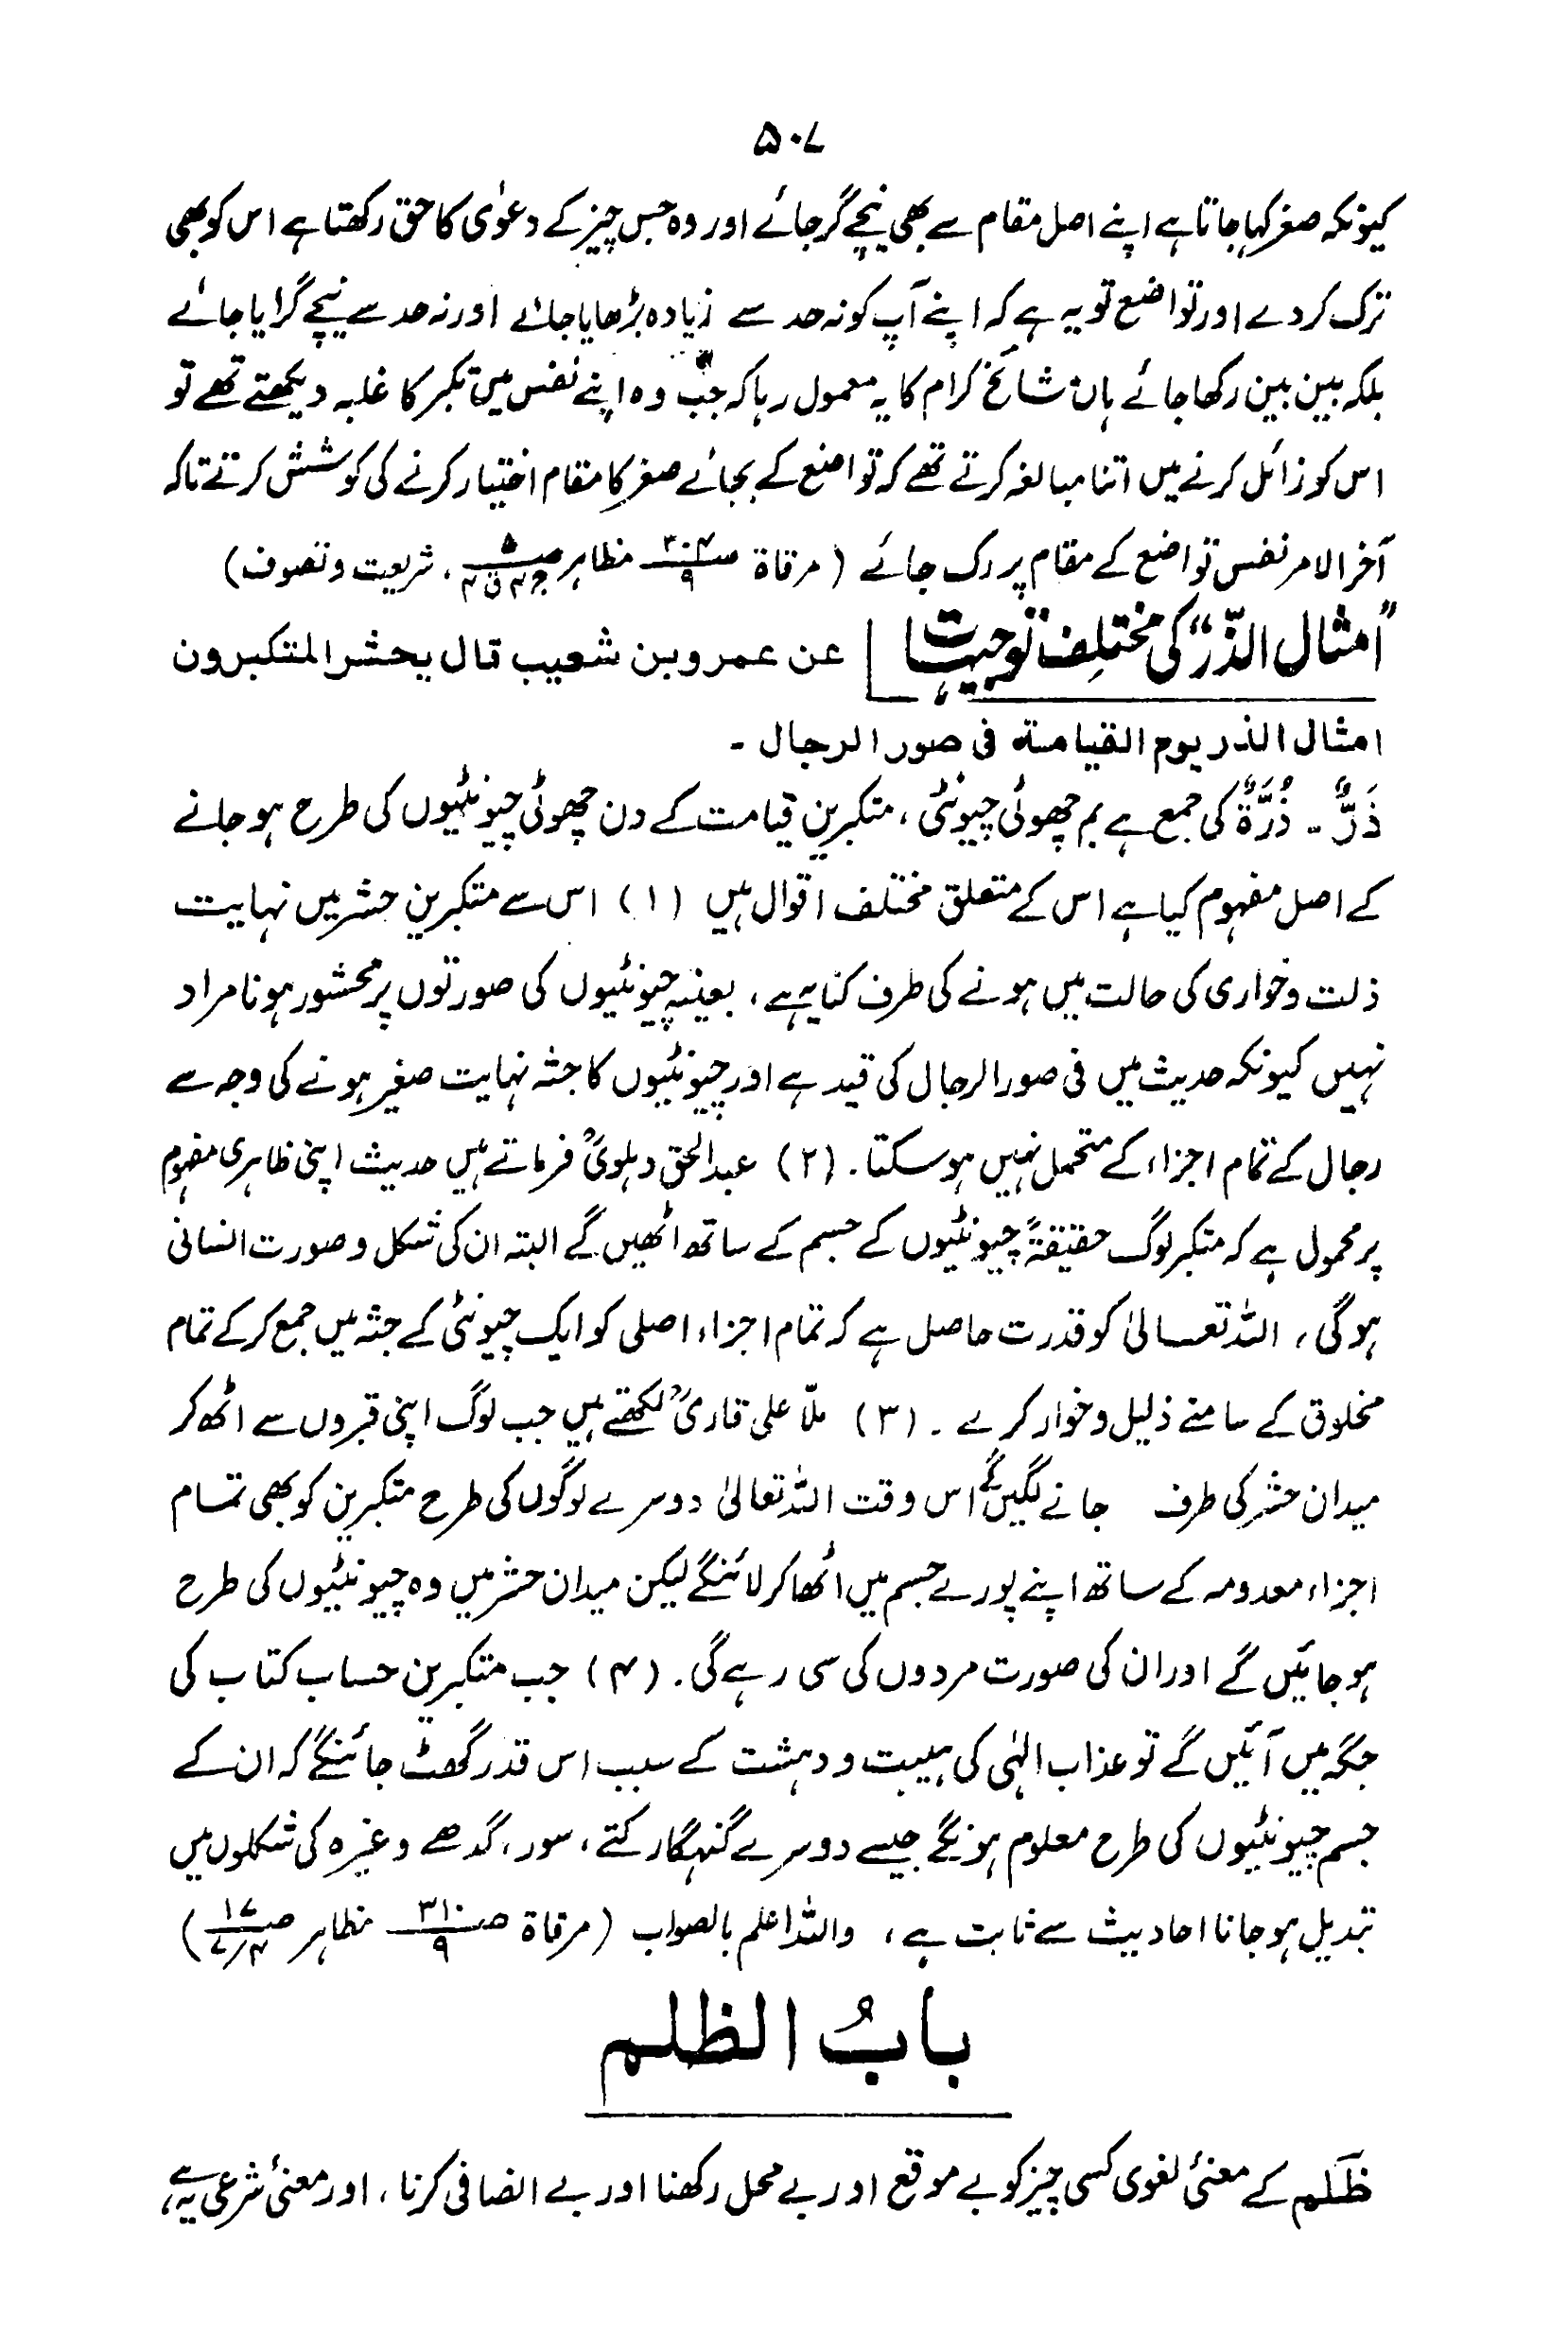 ۵۰۷
کیونکہ صغر کہا جاتا ہے اپنے اصل مقام سے بھی نیچے گر جائے اور وہ جس چیز کے دعوٰی کا حق رکھتا ہے اس کو بھی
ترک کر دے اور تواضع تو یہ ہے کہ اپنے آپ کو نہ حد سے زیادہ بڑھایا جائے اور نہ حد سے نیچے گرایا جائے
بلکہ بین بین رکھا جائے ہاں مشائخ کرام کا یہ معمول رہا کہ جب وہ اپنے نفس میں تکبر کا غلبہ دیکھتے تھے تو
اس کو زائل کرنے میں اتنا مبالغہ کرتے تھے کہ تواضع کے بجائے صغر کا مقام اختیار کرنے کی کوشش کرتے تاکہ
آخر الامر نفس تواضع کے مقام پر رک جائے (مرقاة ص۳۰۴/۹ مظاہر ، شریعت وتصوف)
"امثال الذّر" کی مختلف توجیہات عن عمرو بن شعیب قال یحشر المتکبرون
امثال الذر یوم القیامة فی صور الرجال ۔
ذَرٌّ ۔ ذُرَّةٌ کی جمع ہے بم چھوٹی چیونٹی ، متکبرین قیامت کے دن چھوٹی چیونٹیوں کی طرح ہو جانے
کے اصل مفہوم کیا ہے اس کے متعلق مختلف اقوال ہیں (۱) اس سے متکبرین حشر میں نہایت
ذلت وخواری کی حالت میں ہونے کی طرف کنایہ ہے ، بعینہٖ چیونٹیوں کی صورتوں پر محشور ہونا مراد
نہیں کیونکہ حدیث میں فی صور الرجال کی قید ہے اور چیونٹیوں کا جثہ نہایت صغیر ہونے کی وجہ سے
رجال کے تمام اجزاء کے متحمل نہیں ہو سکتا ۔ (۲) عبدالحق دہلویؒ فرماتے ہیں حدیث اپنی ظاہری مفہوم
پر محمول ہے کہ متکبر لوگ حقیقةً چیونٹیوں کے جسم کے ساتھ اٹھیں گے البتہ ان کی شکل و صورت انسانی
ہوگی ، اللہ تعالیٰ کو قدرت حاصل ہے کہ تمام اجزاء اصلی کو ایک چیونٹی کے جثہ میں جمع کر کے تمام
مخلوق کے سامنے ذلیل وخوار کرے ۔ (۳) ملّا علی قاریؒ لکھتے ہیں جب لوگ اپنی قبروں سے اٹھ کر
میدان حشر کی طرف جانے لگیں گے اس وقت اللہ تعالیٰ دوسرے لوگوں کی طرح متکبرین کو بھی تمام
اجزاء معدومہ کے ساتھ اپنے پورے جسم میں اٹھا کر لائنگے لیکن میدان حشر میں وہ چیونٹیوں کی طرح
ہو جائیں گے اور ان کی صورت مردوں کی سی رہے گی ۔ (۴) جب متکبرین حساب کتاب کی
جگہ میں آئیں گے تو عذاب الہٰی کی ہیبت و دہشت کے سبب اس قدر گھٹ جائنگے کہ ان کے
جسم چیونٹیوں کی طرح معلوم ہونگے جیسے دوسرے گنہگار کتے ، سور ، گدھے وغیرہ کی شکلوں میں
تبدیل ہو جانا احادیث سے ثابت ہے ، واللہ اعلم بالصواب (مرقاة ص۳۱۰/۹ مظاہر ص۱۷/۷،۴)
بابُ الظلم
ظَلم کے معنیٔ لغوی کسی چیز کو بے موقع اور بے محل رکھنا اور بے انصافی کرنا ، اور معنیٔ شرعی یہ ہے ،